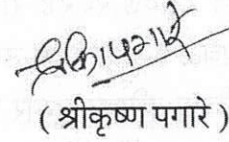 ( श्रीकृष्ण पगारे )